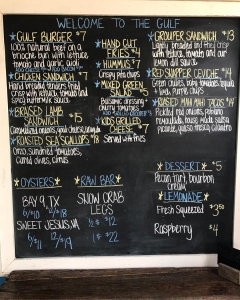 WELCOME TO THE GULF
GULF BURGER $7
100% natural beef on a
brioche bun with lettuce
tomato and garlic aioli
CHICKEN SANDWICH $7
Hand breaded tenders fried
crisp with lettuce, tomato and
spicy buttermilk sauce
BRAISED LAMB
SANDWICH $5
Caramelized onions, feta cheese,
ROASTED SEA SCALLOPS $8
Orzo, sundried tomatoes,
olives, citrus
HAND CUT
FRIES $4
HUMMUS $7
Crispy pita chips
MIXED GREEN
SALAD $5
Balsamic dressing
tomatoes
KIDS GRILLED
CHEESE $7
Served with fries
GROUPER SANDWICH $13
Lightly breaded and fried crisp
with lettuce, tomato and our
lemon dill sauce
RED SNAPPER CEVICHE $14
Green olives, roma tomatoes, squid
lime, plantain chips
ROASTED MAHI MAHI TACOS $14
Pickled red onions,
romaine, salsa
picante, queso fresco, cilantro
DESSERT $5
Pecan tart, bourbon
cream
LEMONADE
Fresh Squeezed $3.50
Raspberry $4
OYSTERS
BAY 9, TX
6/$10 12/$18
SWEET JESUS, MA
6/$11 12/$19
RAW BAR
SNOW CRAB
LEGS
1/2 # $12
1 # $22